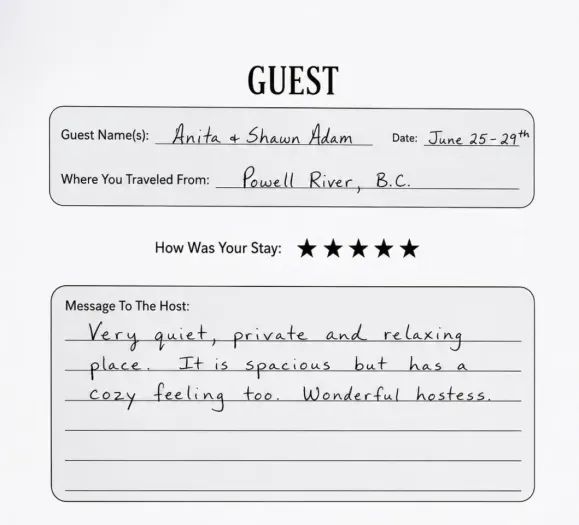 GUEST
Guest Name(s): Anita + Shawn Adam Date: June 25-29th
Where You Traveled From: Powell River, B.C.
How Was Your Stay: ★★★★★
Message To The Host:
Very quiet, private and relaxing
place. It is spacious but has a
cozy feeling too. Wonderful hostess.